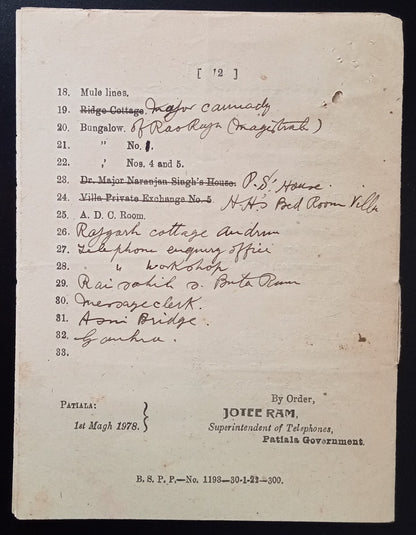 [ 12 ]
18. Mule lines.
19. Ridge Cottage. Major cannady
20. Bungalow. of Rao Raja (magistrate)
21. " No. 1.
22. " Nos. 4 and 5.
23. Dr. Major Naranjan Singh's House. P.S' House.
24. Villa Private Exchange No. 5 H.H's Bed Room Villa
25. A. D. C. Room.
26. Rajgarh cottage
27. Telephone enquiry office
28. " workshop
29. Rai sahib s. Buta Ram
30. Message clerk.
31. Bridge.
32.
33.
PATIALA:
1st Magh 1978.
By Order,
JOTEE RAM,
Superintendent of Telephones,
Patiala Government.
B. S. P. P.—No. 1193—30-1-22—300.